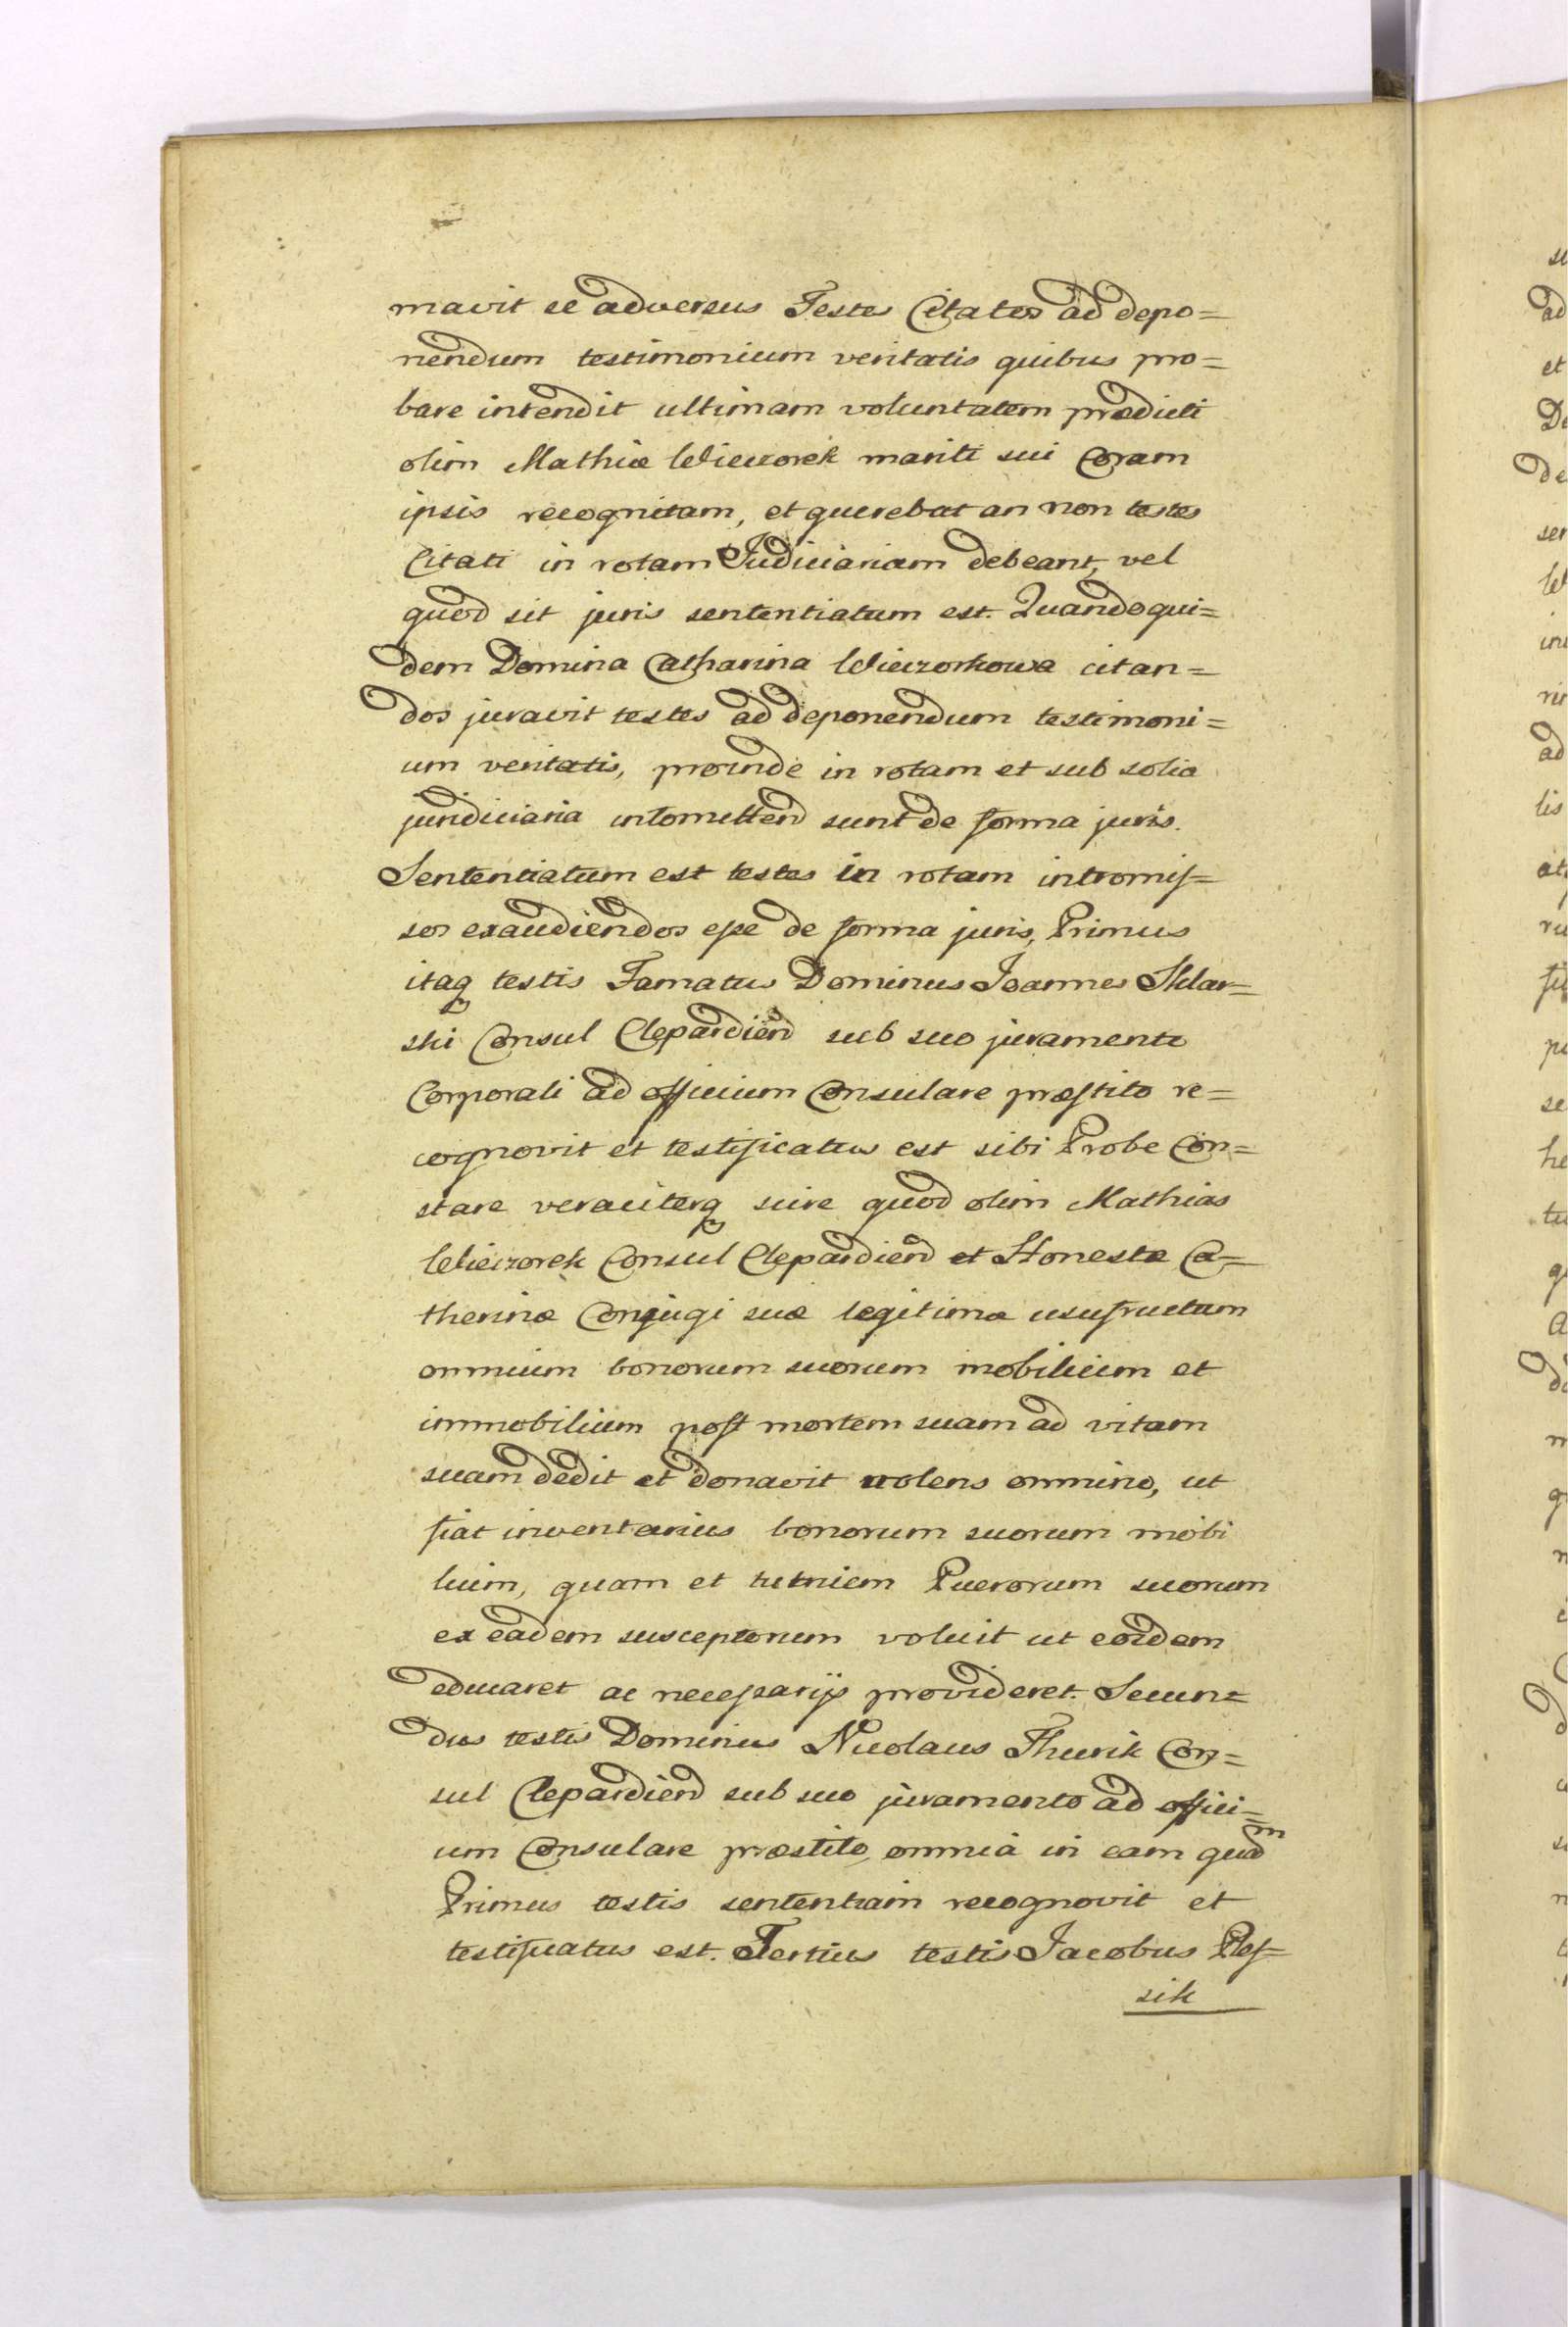 mavit se adversus Testes Citatos ad depo=
nendum testimonium veritatis quibus pro=
bare intendit ultimam voluntatem prædicti
olim Mathiæ Wieczorek mariti sui Coram
ipsis recognitam, et querebat an non testes
Citati in rotam Judiciariam debeant, vel
quod sit juris sententiatum est. Quandoqui=
dem Domina Catharina Wieczorkowa citan=
dos juravit testes ad deponendum testimoni=
um veritatis, proinde in rotam et sub solia
juridiciaria intomittend sunt de forma juris.
Sententiatum est testes in rotam intromis=
sos exaudiendos esse de forma juris, Primus
itaq testis Famatus Dominus Joannes Sklar=
ski Consul Clepardien̄ sub suo juramento
Corporali ad officium Consulare præstito re=
cognovit et testificatus est sibi Probe Con=
stare veraciterq scire quod olim Mathias
Wieczorek Consul Clepardien̄ et Honestæ Ca=
therinæ Conjugi suæ legitimæ usufructum
omnium bonorum suorum mobilium et
immobilium post mortem suam ad vitam
suam dedit et donavit nolens omnino, ut
fiat inventarius bonorum suorum mobi
lium, quam et tutricem Puerorum suorum
ex eadem susceptorum voluit ut eosdem
educaret ac necessarijs provideret. Secun=
dus testis Dominus Nicolaus Thurik Con=
sul Clepardien̄ sub suo juramento ad offici=
um Consulare præstito, omnia in eam quam
Primus testis sententiam recognovit et
testificatus est. Tertius testis Jacobus Ples=
sik